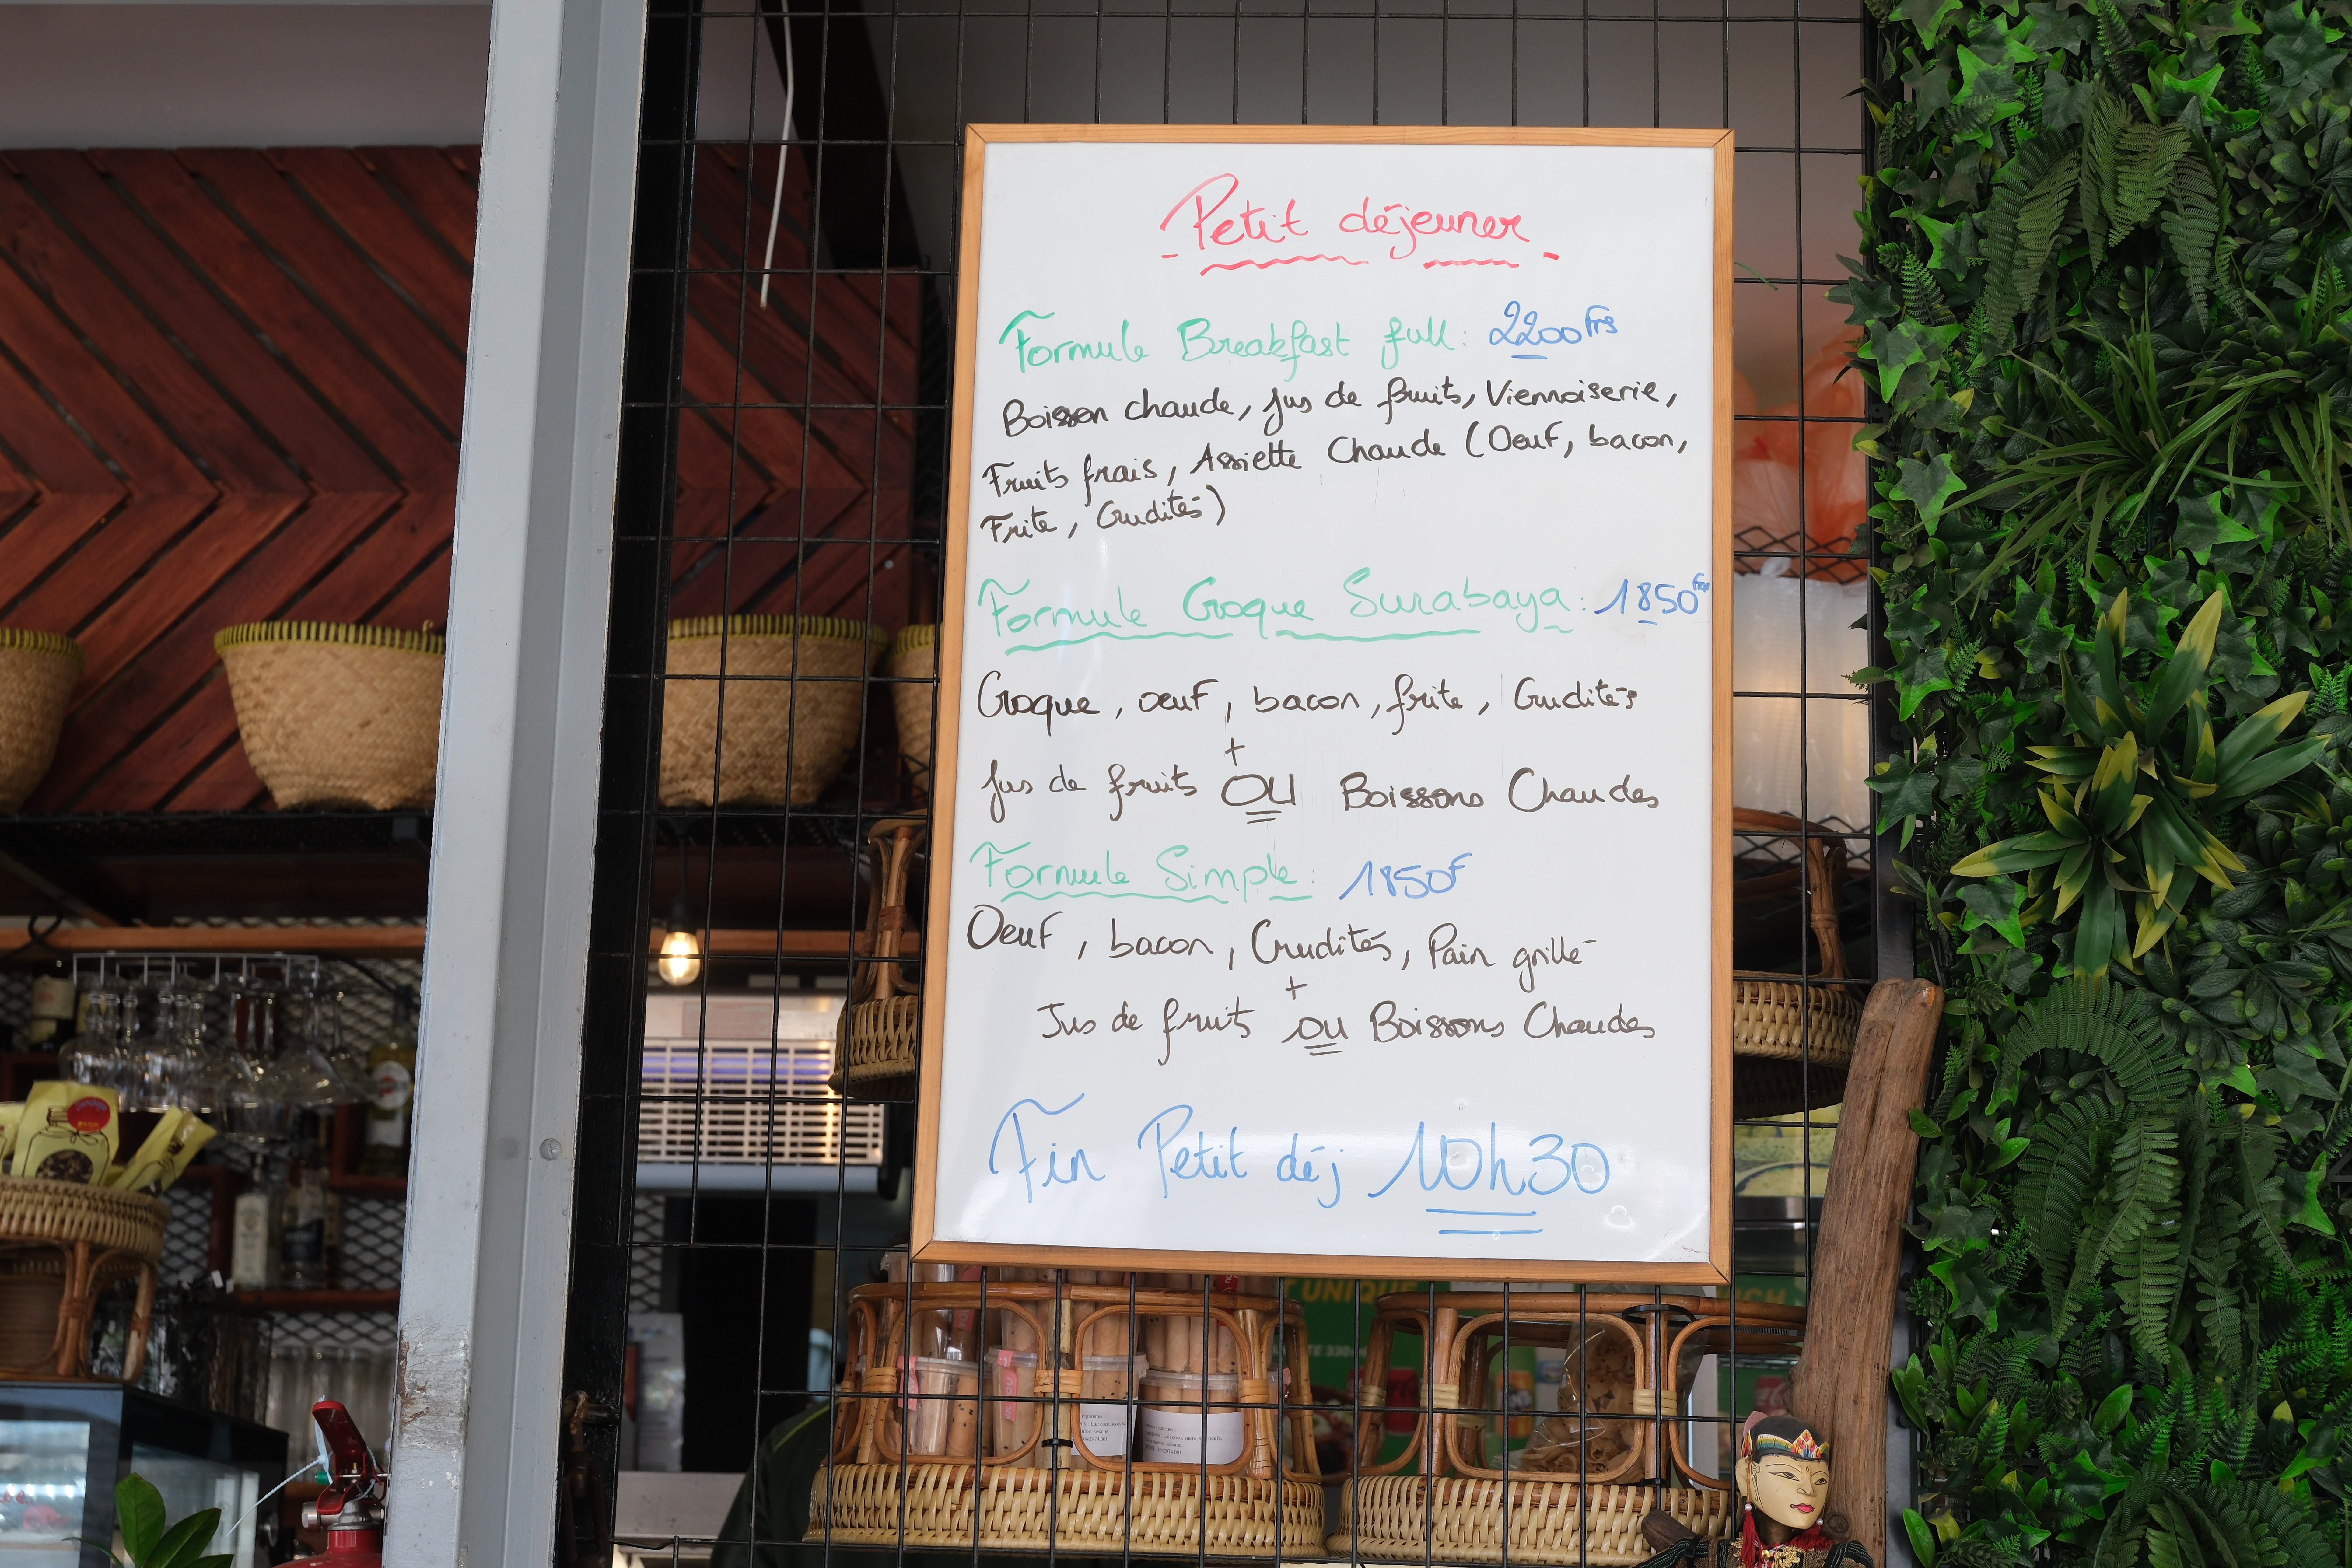 Petit déjeuner
Formule Breakfast full : 2200 Frs
Boisson chaude, jus de fruits, Viennoiserie,
Fruits frais, Assiette Chaude (Oeuf, bacon,
Frite, Crudités)
Formule Croque Surabaya : 1850 Frs
Croque, oeuf, bacon, frite, Crudités
+
jus de fruits OU Boissons Chaudes
Formule Simple : 1850F
Oeuf, bacon, Crudités, Pain grillé
+
Jus de fruit ou Boissons Chaudes
Fin Petit déj 10h30
UNIQUE